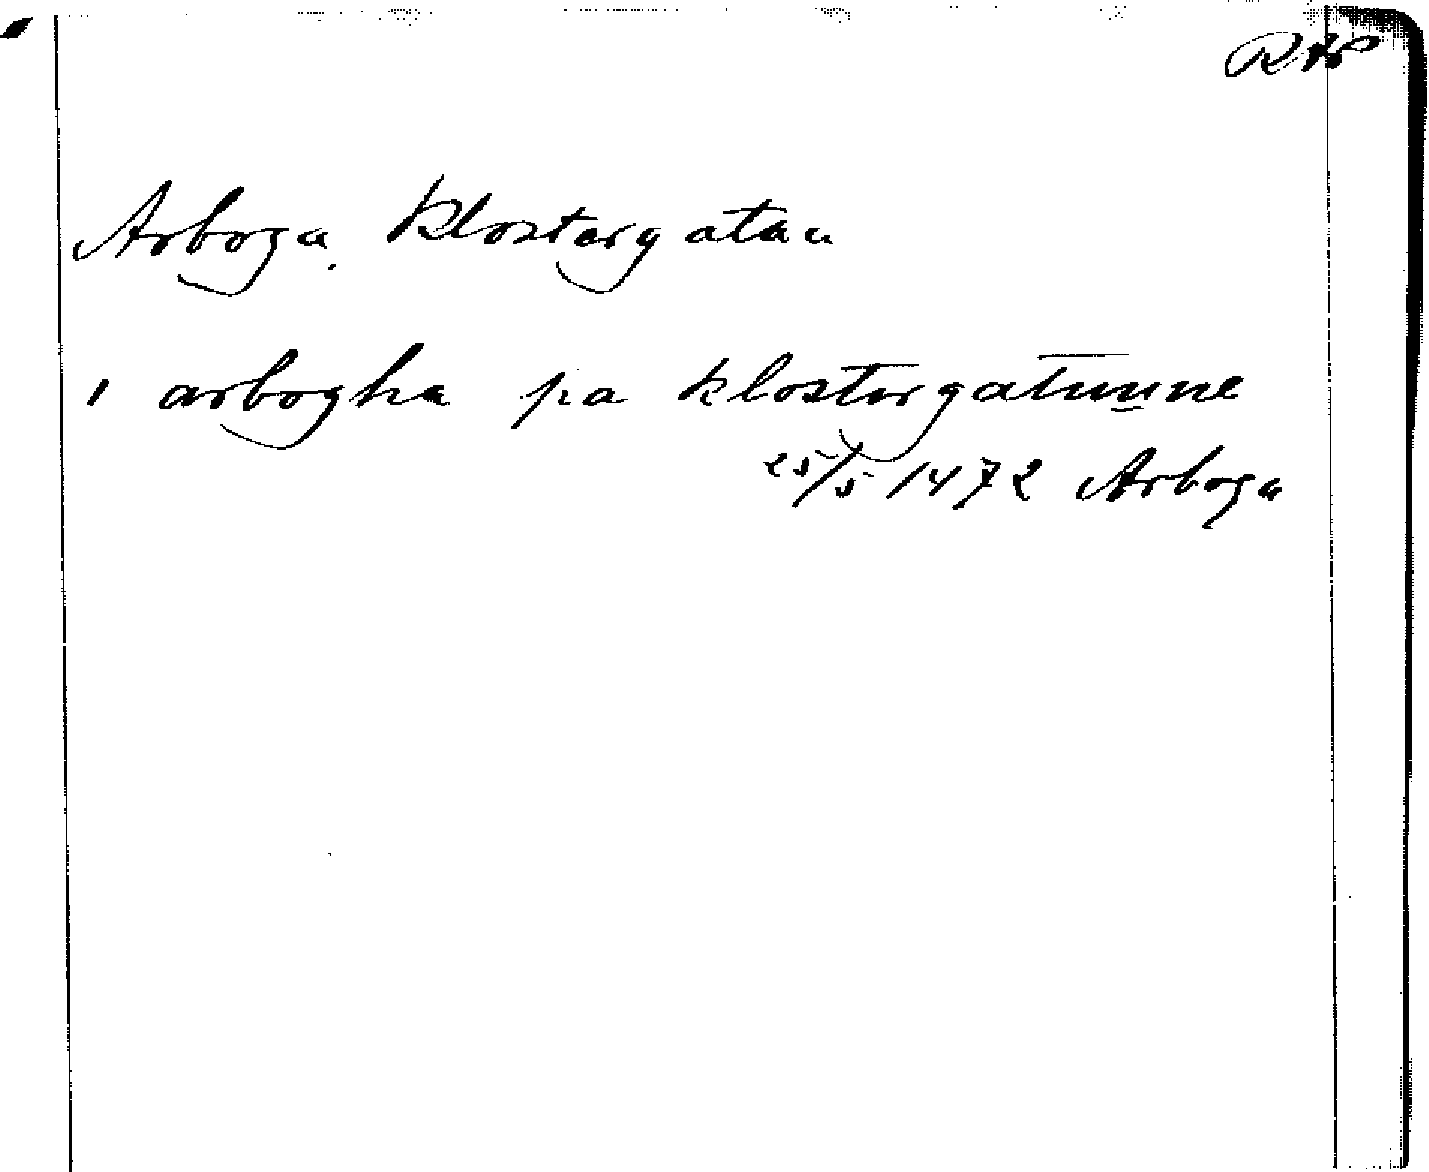 RAP
Arboga. Klostergatan
i arbogha pa klostergatunne
25/5 1472 Arboga